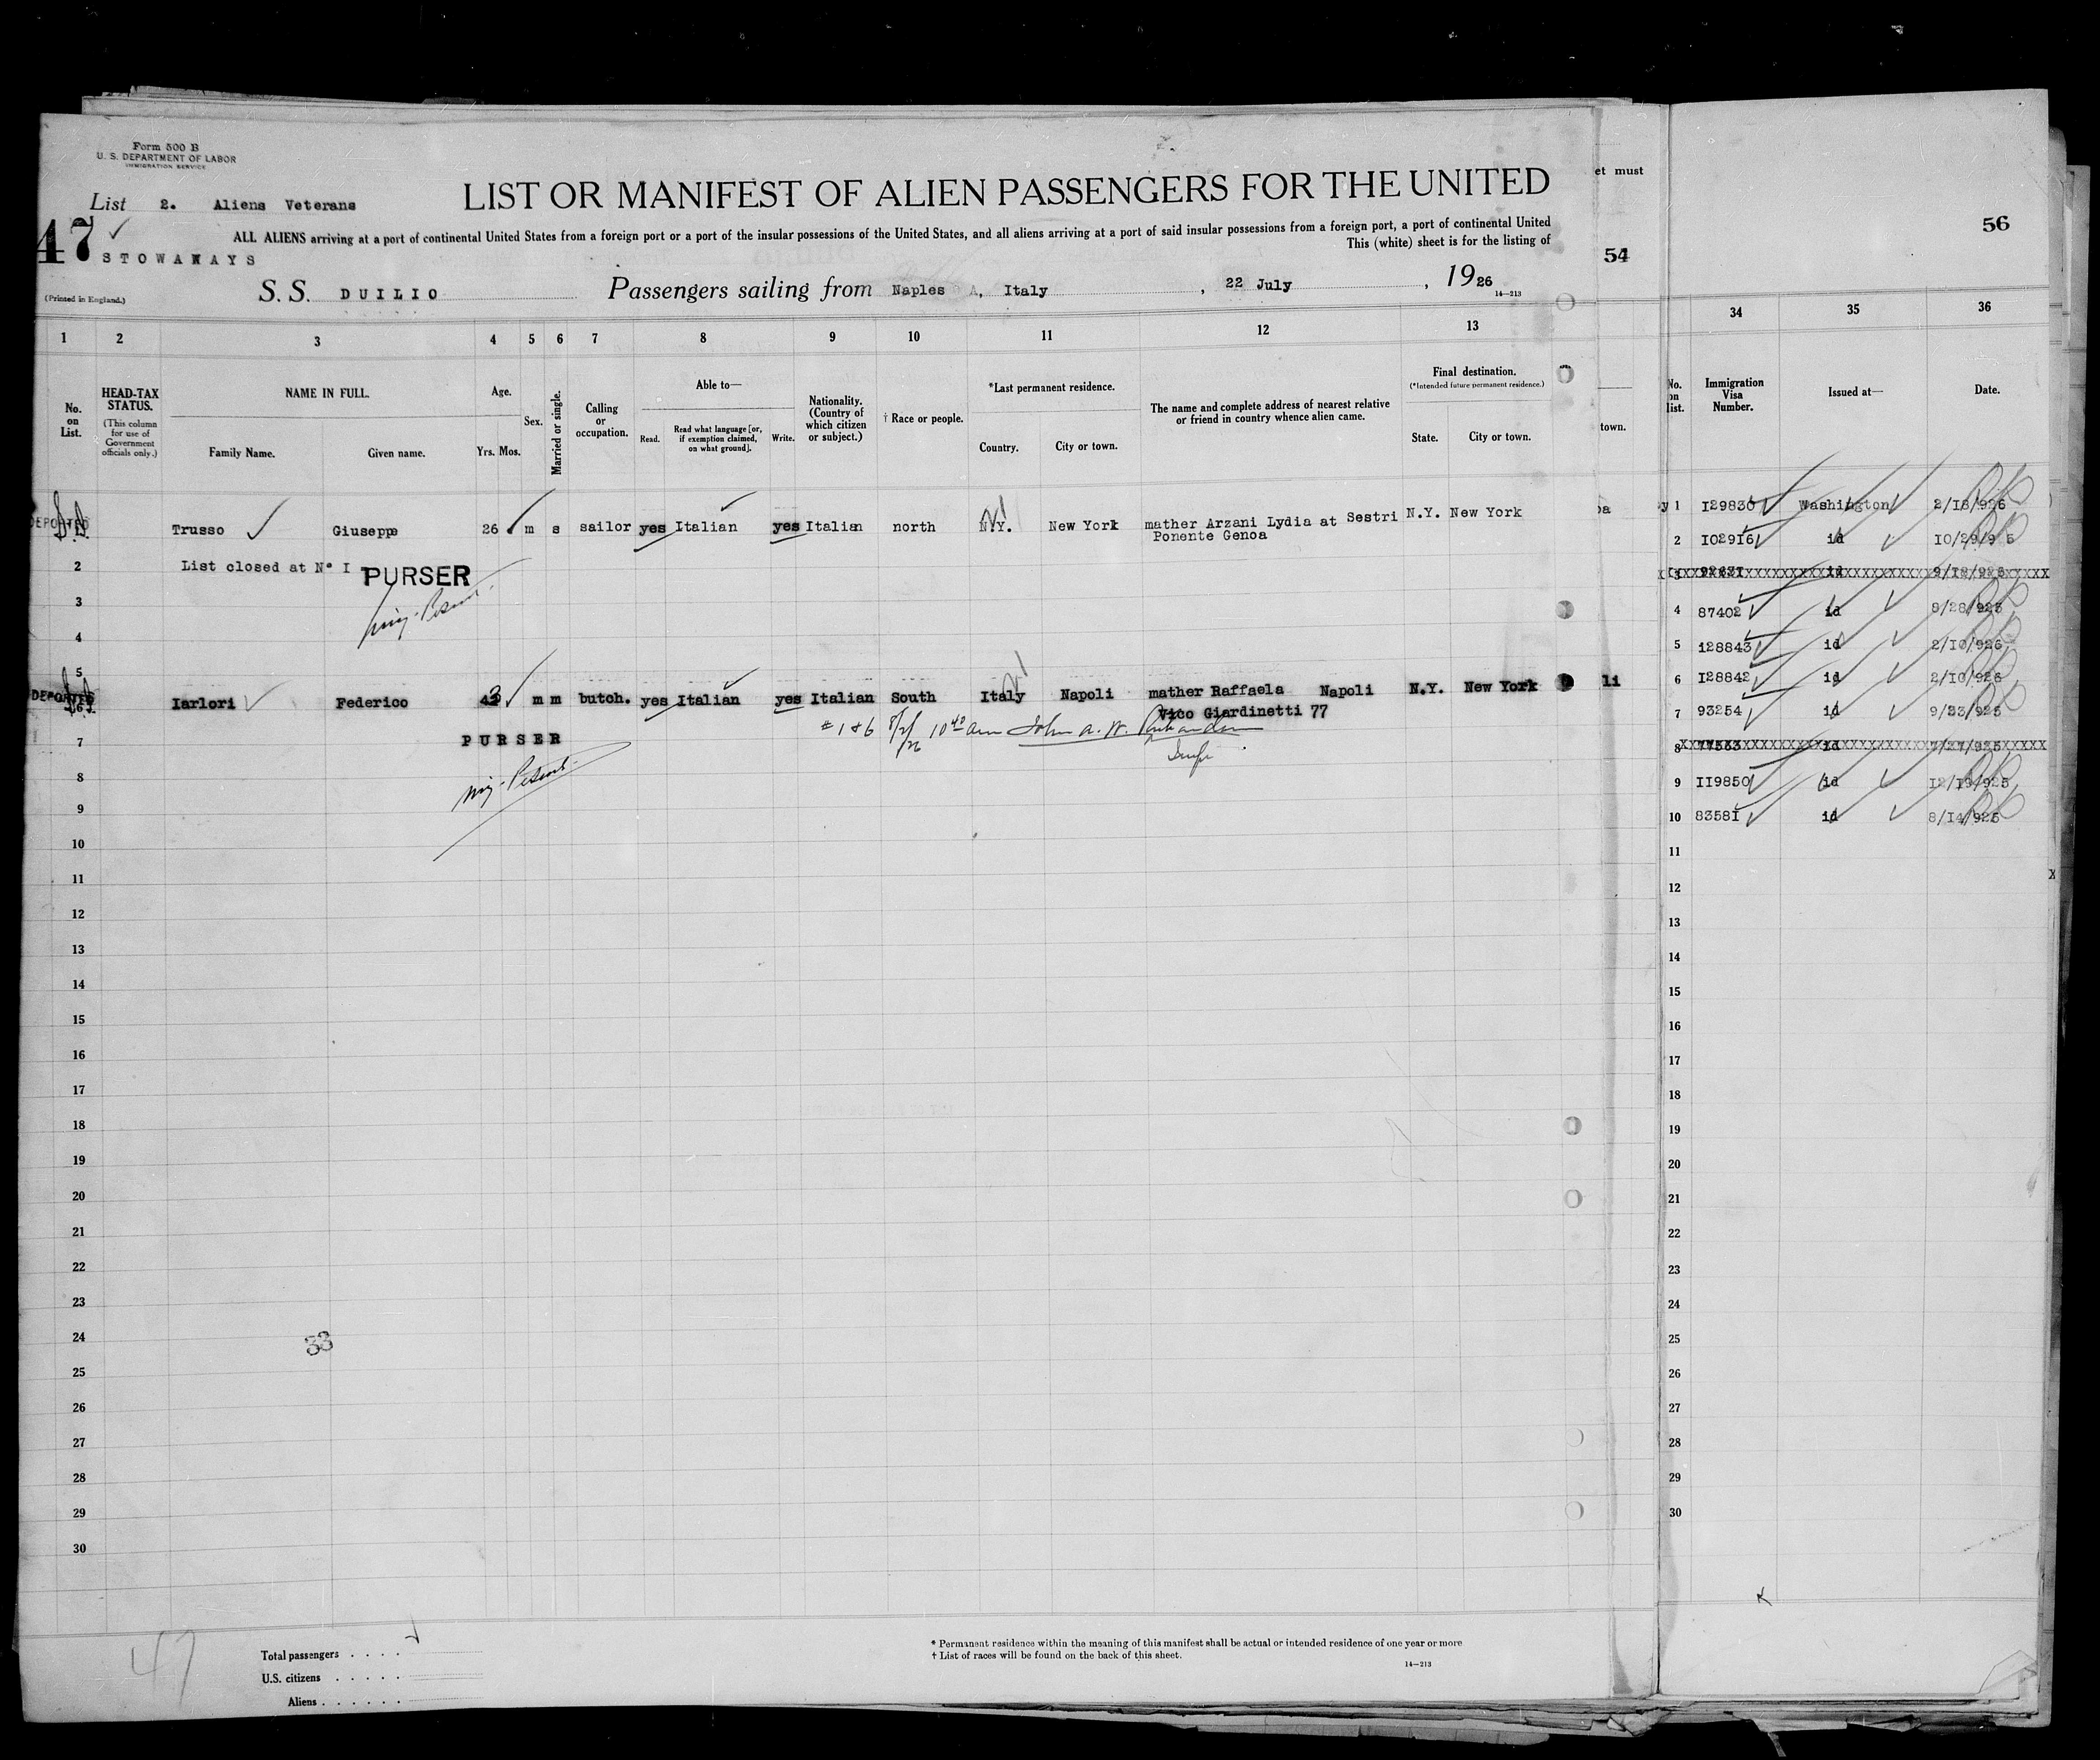 Form 500 B
U. S. DEPARTMENT OF LABOR
IMMIGRATION SERVICE
List 2. Aliens Veterans
LIST OR MANIFEST OF ALIEN PASSENGERS FOR THE UNITED
47
STOWAWAYS
ALL ALIENS arriving at a port of continental United States from a foreign port or a port of the insular possessions of the United States, and all aliens arriving at a port of said insular possessions from a foreign port, a port of continental United
This (white) sheet is for the listing of
(Printed in England.)
S. S. DUILIO Passengers sailing from Naples A, Italy, 22 July, 1926
14—213
1 2 3 4 5 6 7 8 9 10 11 12 13
No. on List.
HEAD-TAX STATUS.
(This column for use of Government officials only.)
NAME IN FULL.
Family Name. Given name.
Age.
Yrs. Mos.
Sex.
Married or single.
Calling or occupation.
Able to—
Read. Read what language [or, if exemption claimed, on what ground]. Write.
Nationality. (Country of which citizen or subject.)
† Race or people.
*Last permanent residence.
Country. City or town.
The name and complete address of nearest relative or friend in country whence alien came.
Final destination.
(*Intended future permanent residence.)
State. City or town.
DEPORTED Trusso Giuseppe 26 m s sailor yes Italian yes Italian north N.Y. New York mather Arzani Lydia at Sestri N.Y. New York
Ponente Genoa
2 List closed at N° I PURSER
3
4
5
DEPORTED Iarlori Federico 43 m m butch. yes Italian yes Italian South Italy Napoli mather Raffaela Napoli N.Y. New York
Vico Giardinetti 77
# 1 & 6 8/2/26 10 40 am John A. W.
7 PURSER
8
9
10
11
12
13
14
15
16
17
18
19
20
21
22
23
24
33
25
26
27
28
29
30
47
Total passengers . . . .
U.S. citizens . . . . .
Aliens . . . . . .
* Permanent residence within the meaning of this manifest shall be actual or intended residence of one year or more
† List of races will be found on the back of this sheet.
14—213
et must
54
town.
pa
li
56
34 35 36
No. on list.
Immigration Visa Number.
Issued at—
Date.
y 1 I29830 Washington 2/18/926
2 I02916 id 10/29/9 5
3 id
4 87402 id 8/28/925
5 128843 id 2/10/926
6 I28842 id 2/10/926
7 93254 id 9/23/925
8 77563 id 7/27/925
9 II9850 id 12/19/925
10 8358I id 8/14/925
11
12
13
14
15
16
17
18
19
20
21
22
23
24
25
26
27
28
29
30